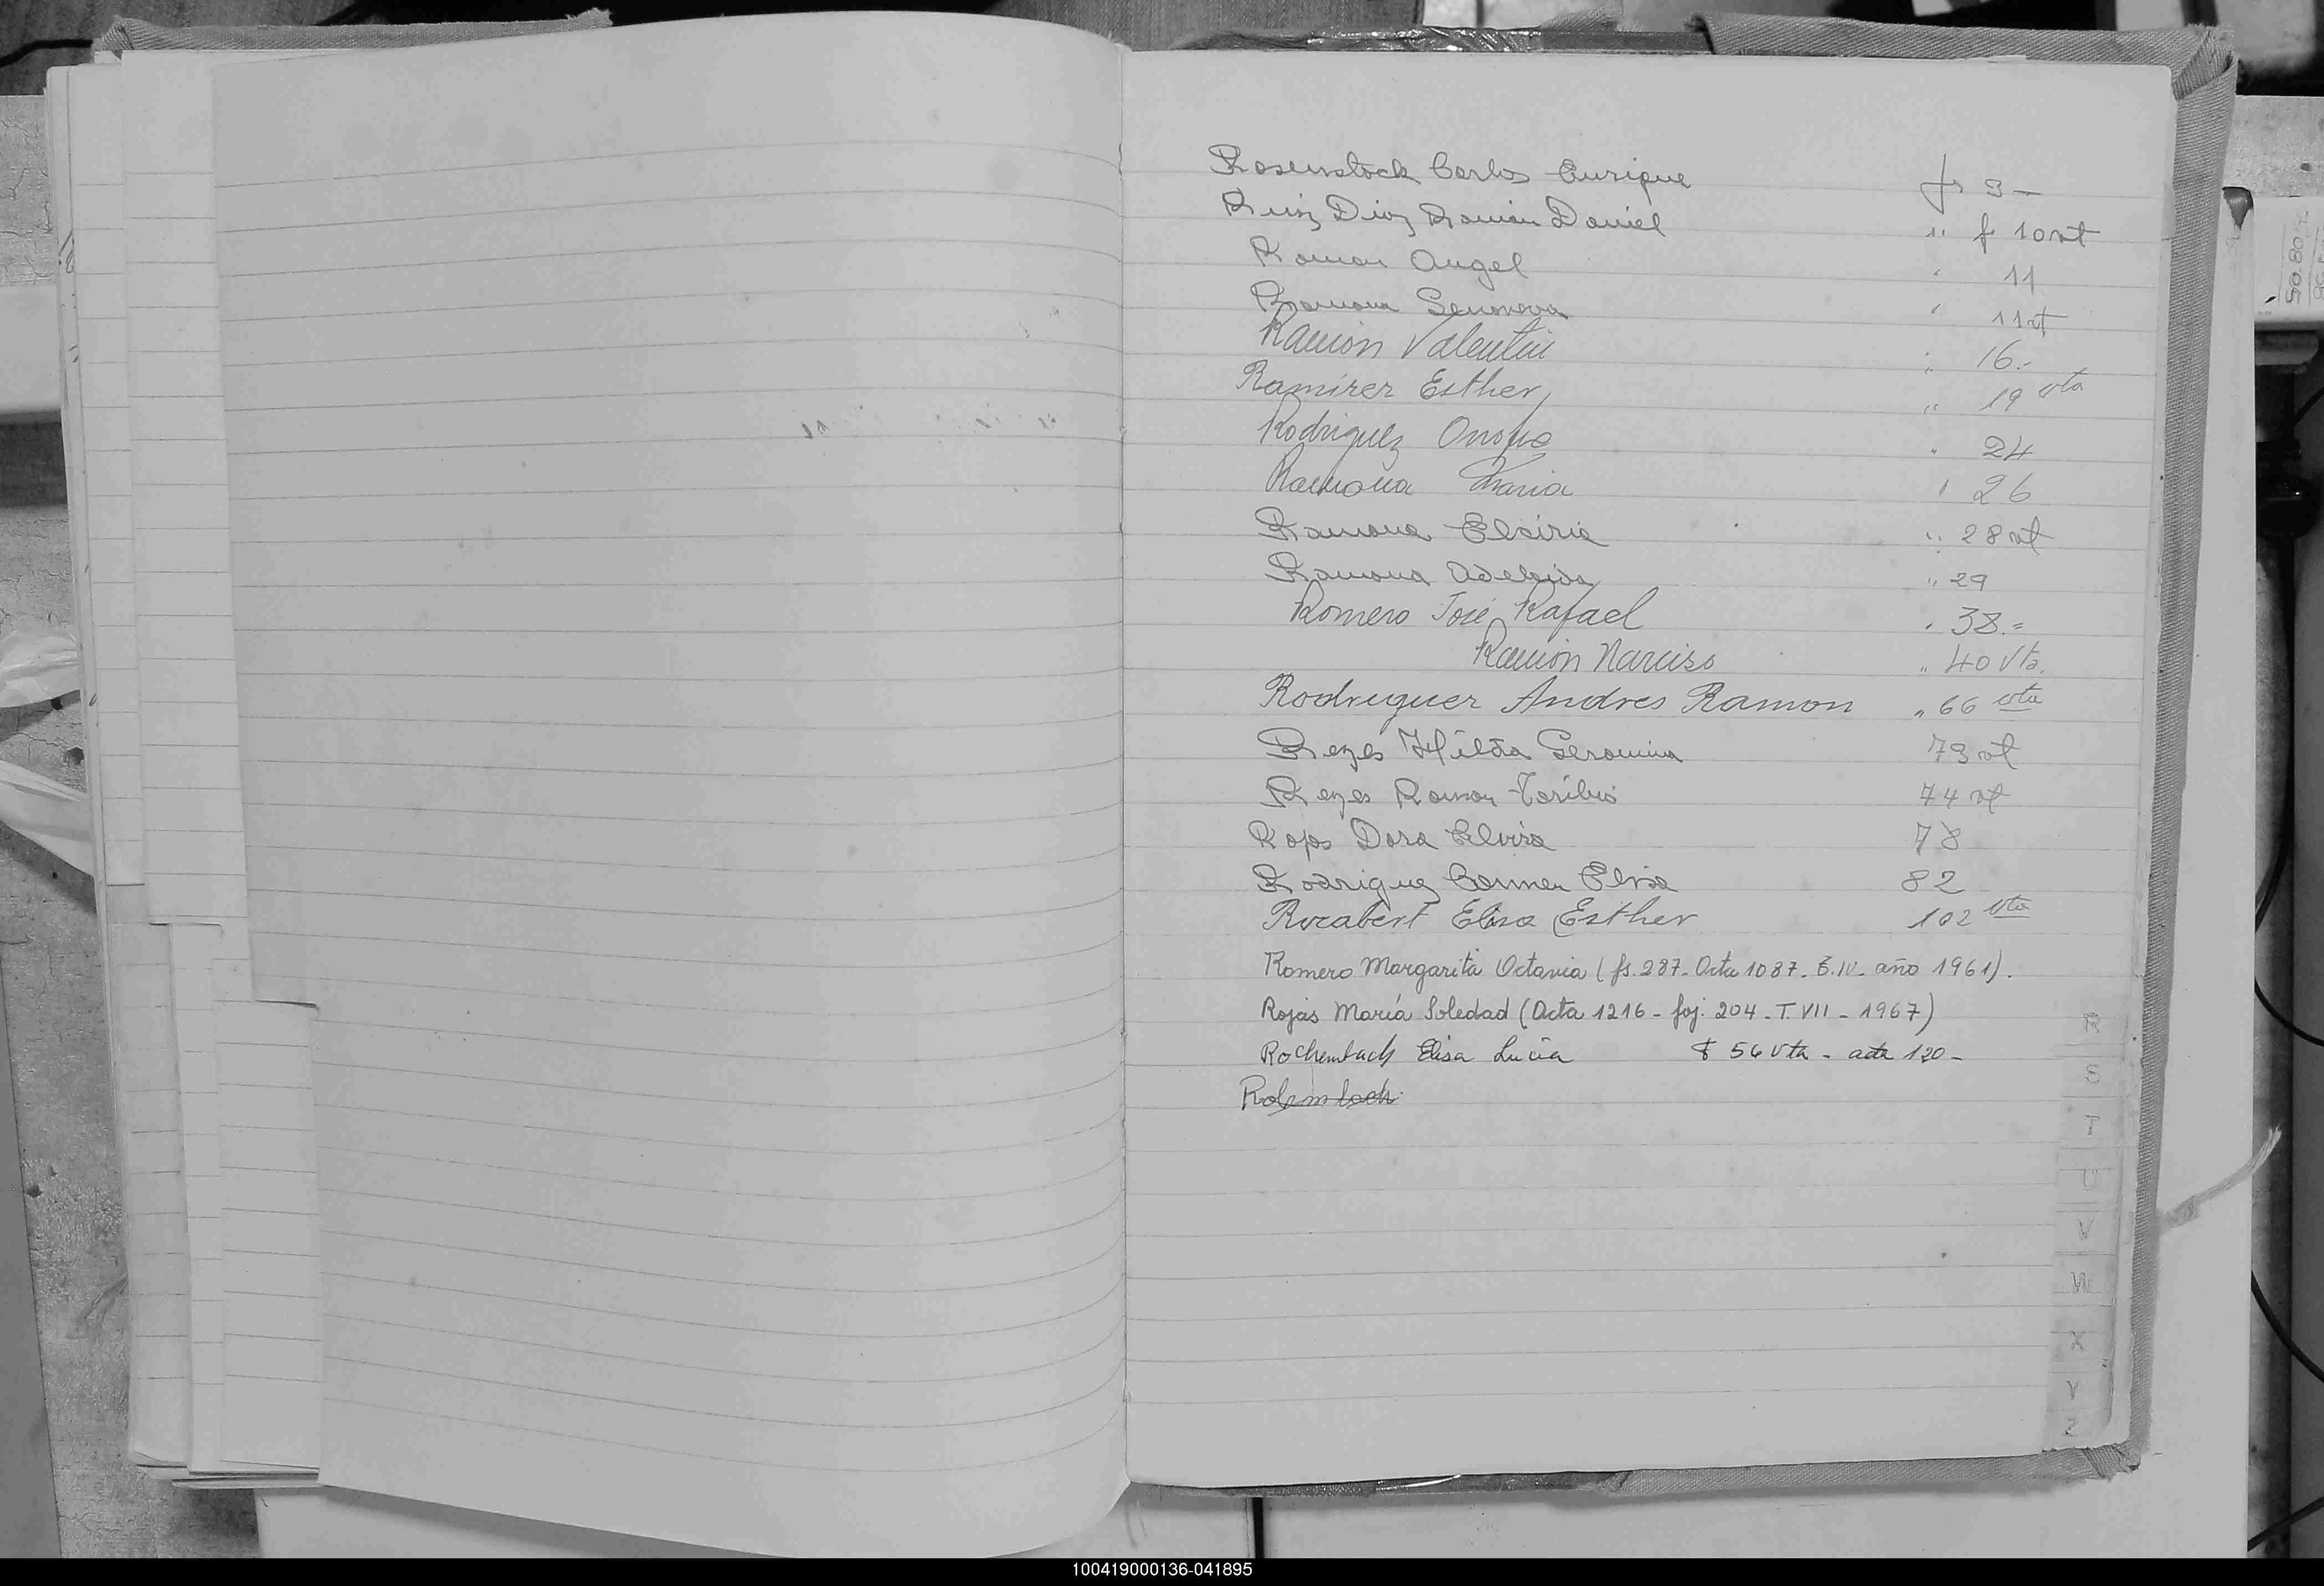 Rosenstock Carlos Enrique fs 9 —
Ruiz Diaz Ramón Daniel " f 10 vt
Roman Angel " 11
Ramona Genoveva " 11 vt
Ramón Valentin " 16.-
Ramirez Esther " 19 vta
Rodriguez Onofre " 24
Ramona Maria " 26
Ramona Elsiria " 28 vt
Ramona Adelaida " 29
Romero José Rafael " 38.=
Ramón Narciso " 40 Vta.
Rodruguer Andres Ramon " 66 vta
Reyes Hilda Geronima 73 vt
Reyes Ramon Toribio 74 vt
Rojas Dora Elvira 78
Rodriguez Carmen Elisa 82
Rocabert Elisa Esther 102 vta
Romero Margarita Octavia (fs. 287. Acta 1087. T.IV. año 1961).
Rojas María Soledad (Acta 1216 - foj. 204 - T. VII - 1967)
Rochembach Elisa Lucia f 56 Vta - acta 120 -
R
S
T
U
V
W
X
Y
Z
100419000136-041895